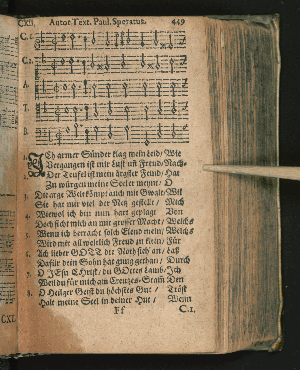 CXII. Autor Text. Paul. Speratus. 449
C.1.
C.2.
A.
T.
B.
1. ICh armer Sünder klag mein Leid/ Wie
Vergangen ist mir Lust uñ Freud/ Nach-
Der Teufel ist mein ärgster Feind/ Hat
Zu würgen meine Seel er meynt/ O
Die arge Welt kömpt auch mit Gwalt/ Wil
Sie hat mir viel der Netz gestellt/ Mich
Wiewol ich bin nun hart geplagt/ Von
Doch ficht mich an mit grosser Macht/ Welchs
Wenn ich betracht solch Elend mein/ Welchs
Wird mir all weltlich Freud zu klein/ Für
Ach lieber GOTT die Noth sieh an/ Laß
Dafür dein Sohn hat gnung gethan/ Durch
O JEsu CHrist/ du GOttes Lamb/ Ich
Weil du für mich am Creutzes-Stam̃/ Den
O Heiliger Geist du höchstes Gut/ Tröst
Halt meine Seel in deiner Hut/ Wenn
Ff C.1.
CXI.